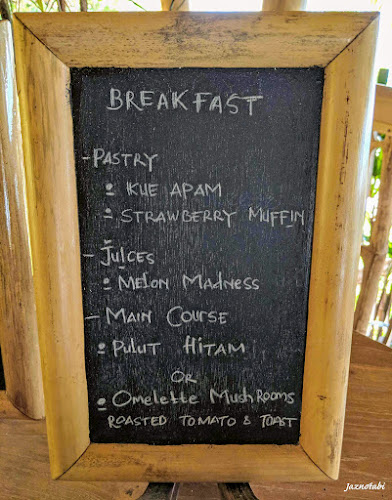 BREAKFAST
- PASTRY
• KUE APAM
• STRAWBERRY MUFFIN
- JUICES
• MELON MADNESS
- MAIN COURSE
• PULUT HITAM
OR
• Omelette MushRooms
ROASTED TOMATO & TOAST
jaznotabi